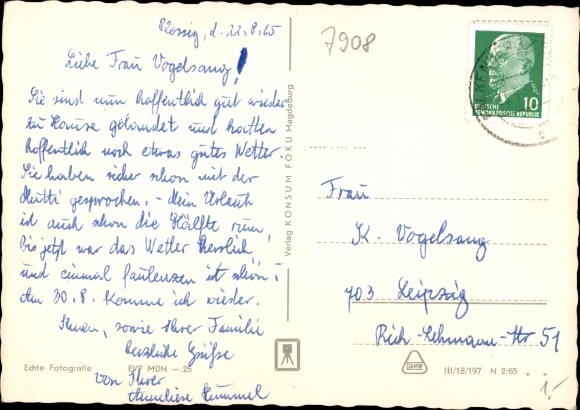 Plossig, d. 22.8.65
Liebe Frau Vogelsang!
Sie sind nun hoffentlich gut wieder
zu Hause gelandet und hatten
hoffentlich noch etwas gutes Wetter.
Sie haben sicher schon mit der
Mutti gesprochen. - Mein Urlaub
ist auch schon die Hälfte rum,
bis jetzt war das Wetter herrlich
und einmal faulenzen ist schön. -
Am 30.8. komme ich wieder.
Ihnen, sowie Ihrer Familie
herzliche Grüße
von Ihrer
Anneliese Hummel
Echte Fotografie
EVP MDN —.25
Verlag KONSUM FOKU Magdeburg
7908
DEUTSCHE
DEMOKRATISCHE REPUBLIK
10
Frau
K. Vogelsang
703 Leipzig
Rich.-Lehmann-Str 51
DAMW
III/18/197 N 2/65
1,-